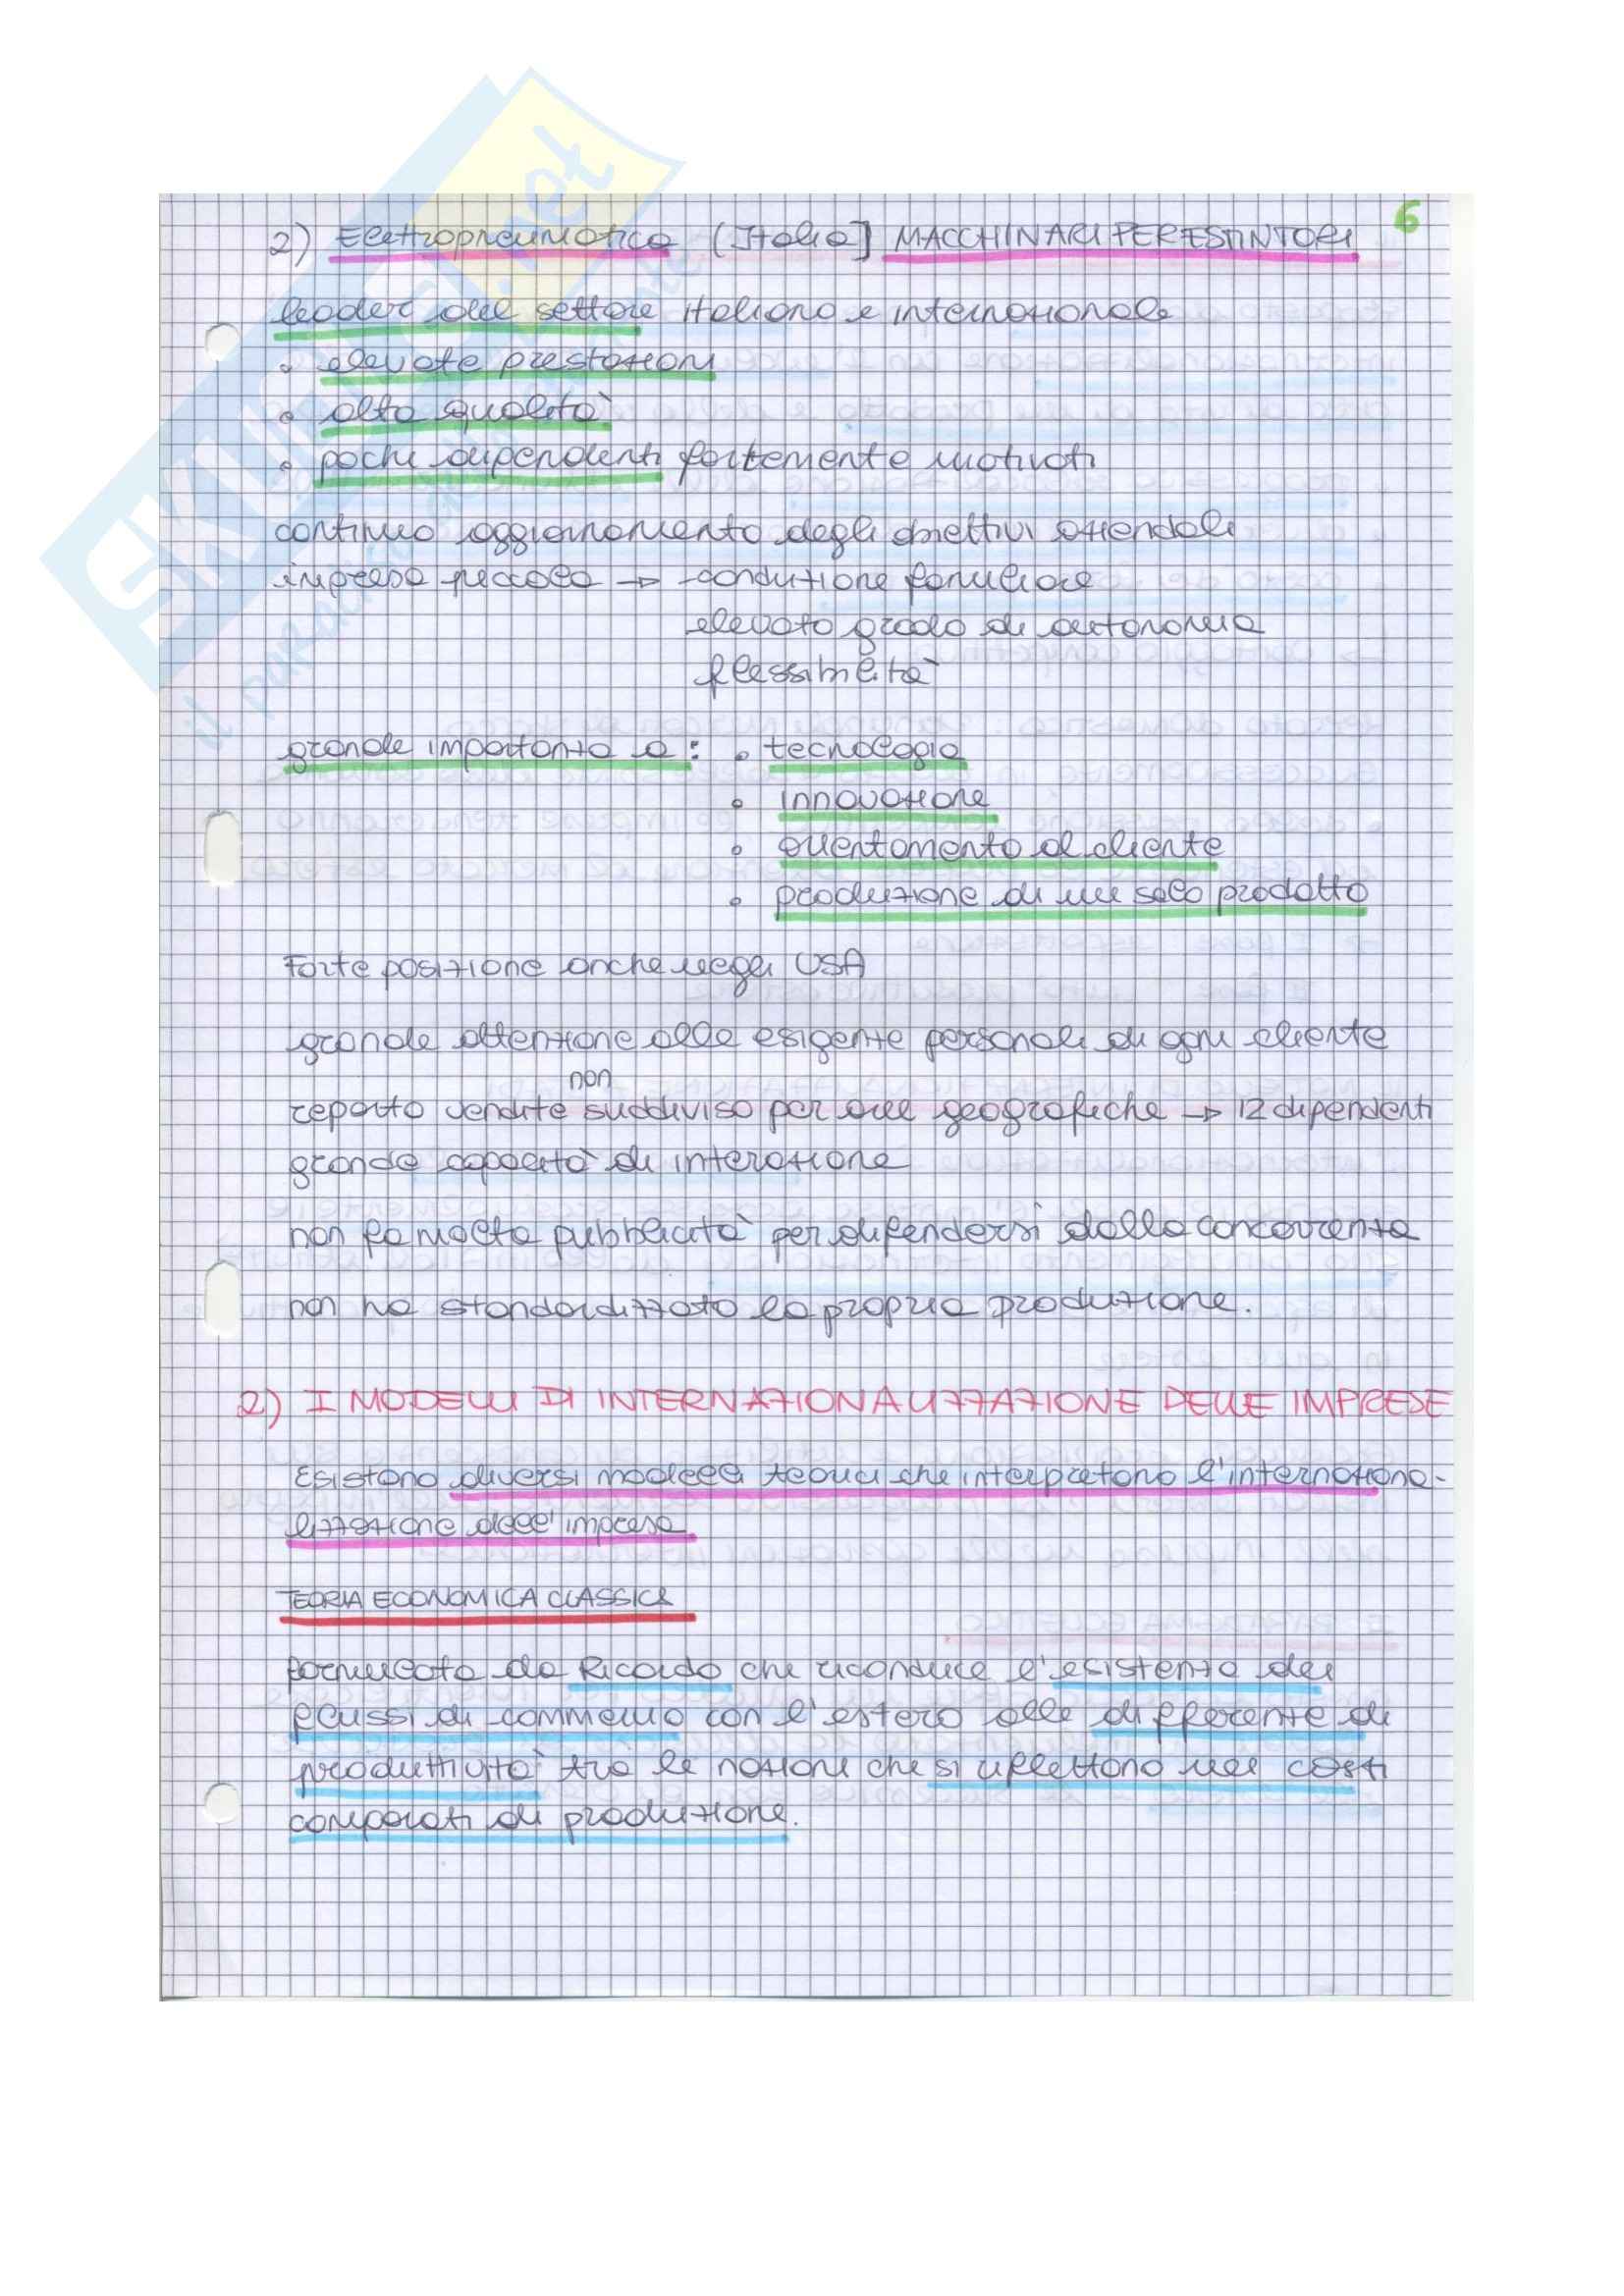 6
2) Elettropneumatica (Italia] MACCHINARI PER ESTINTORI
leader del settore italiano e internazionale
• elevate prestazioni
• alta qualità
• pochi dipendenti fortemente motivati
continuo aggiornamento degli obiettivi aziendali
impresa piccola → conduzione familiare
elevato grado di autonomia
flessibilità
grande importanza a: • tecnologia
• innovazione
• orientamento al cliente
• produzione di un solo prodotto
Forte posizione anche negli USA
grande attenzione alle esigenze personali di ogni cliente
non
reparto vendite suddiviso per aree geografiche → 12 dipendenti
grande capacità di interazione
non fa molta pubblicità per difendersi dalla concorrenza
non ha standardizzato la propria produzione.
2) I MODELLI DI INTERNAZIONALIZZAZIONE DELLE IMPRESE
Esistono diversi modelli teorici che interpretano l'internaziona-
lizzazione dell'impresa
TEORIA ECONOMICA CLASSICA
formulata da Ricardo che riconduce l'esistenza dei
flussi di commercio con l'estero alle differenze di
produttività tra le nazioni che si riflettono nei costi
comparati di produzione.
SKUOLA.net
il paradiso dello studente